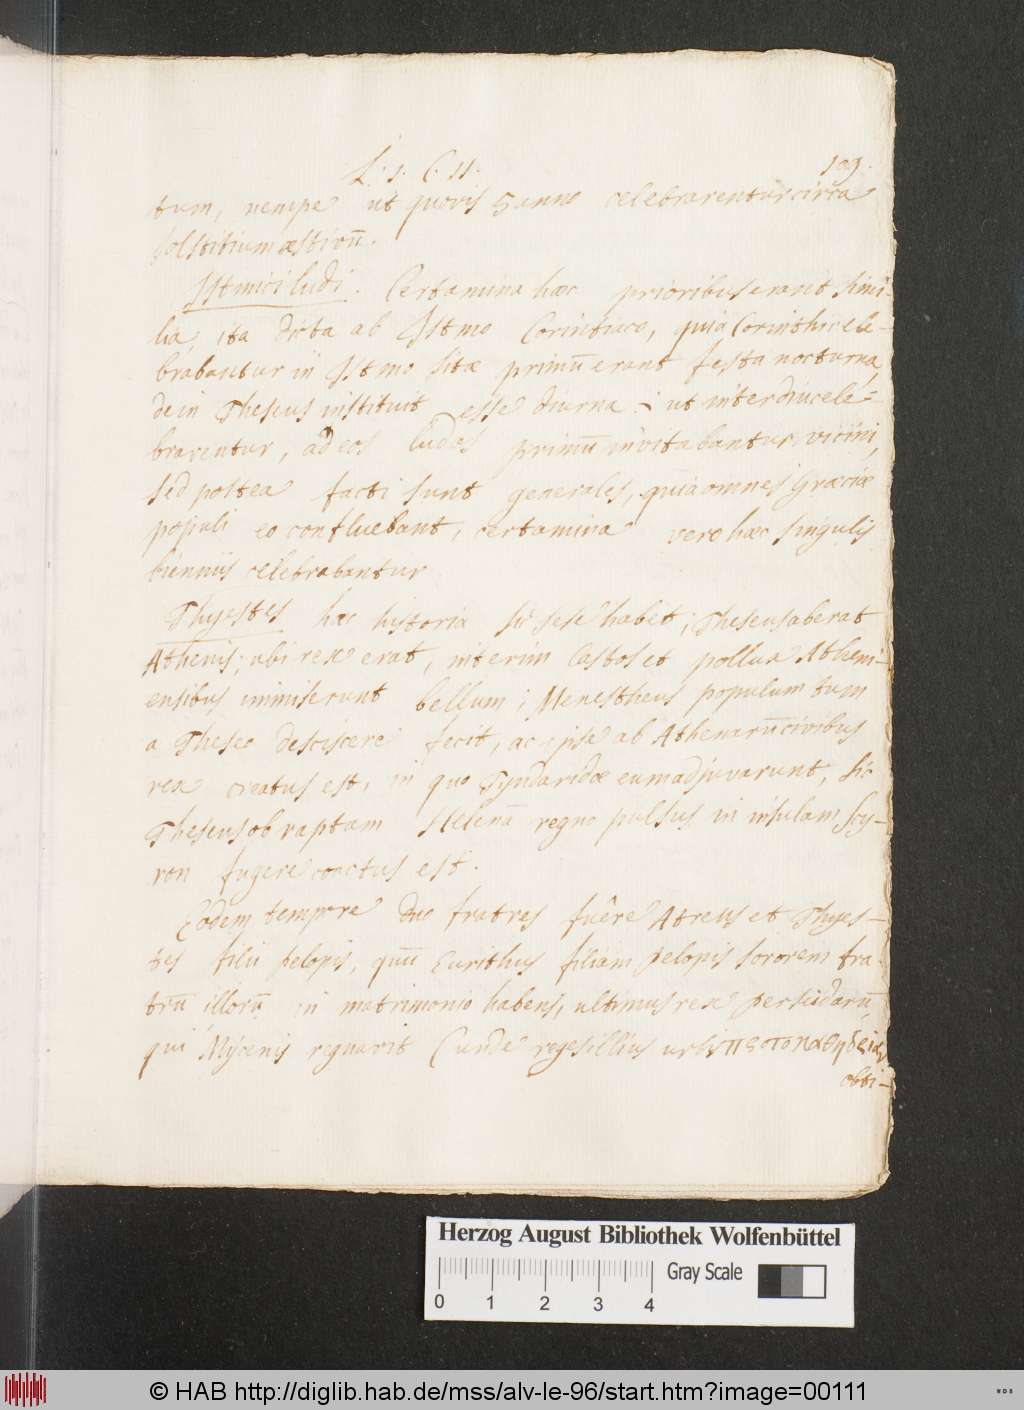 L. 1. C. 11. 109.
tum, nempe ut quovis 5 anno celebrarentur circa
solstitium æstivū.
Istmici ludi. Certamina hæc prioribus erant simi-
lia, ita dicta ab Istmo Corintiaco, quia Corinthii cele-
brabantur in Istmo sitæ primū erant festa nocturna,
dein Theseus instituit esse diurna ut interdiu cele-
brarentur, ad eos ludos primū invitabantur viciini,
sed postea facti sunt generales, quia omnes Græciæ
populi eo confluebant, certamina vero hæc singulis
bienniis celebrabantur
Thyestes hæc historia sic sese habet; Theseus aberat
Athenis, ubi rex erat, interim Castos et pollux Atheni-
ensibus immiserunt bellum; Menestheus populum tum
a Theseo desciscere fecit, ac ipse ab Athenarū civibus
rex creatus est, in quo Tyndaridæ eum adjuvarunt, sic
Theseus ob raptam Helenā regno pulsus in insulam scy-
ron fugere coactus est.
Eodem tempore duo fratres fuêre Atreus et Thyes-
tes filii pelopis, quū Eurithus filiam pelopis sororem fra-
trū illorū in matrimonio habens, ultimus rex persidarū,
qui Miscenis regnavit (unde reges illius urbis
obti-
Herzog August Bibliothek Wolfenbüttel
Gray Scale
0 1 2 3 4
© HAB http://diglib.hab.de/mss/alv-le-96/start.htm?image=00111